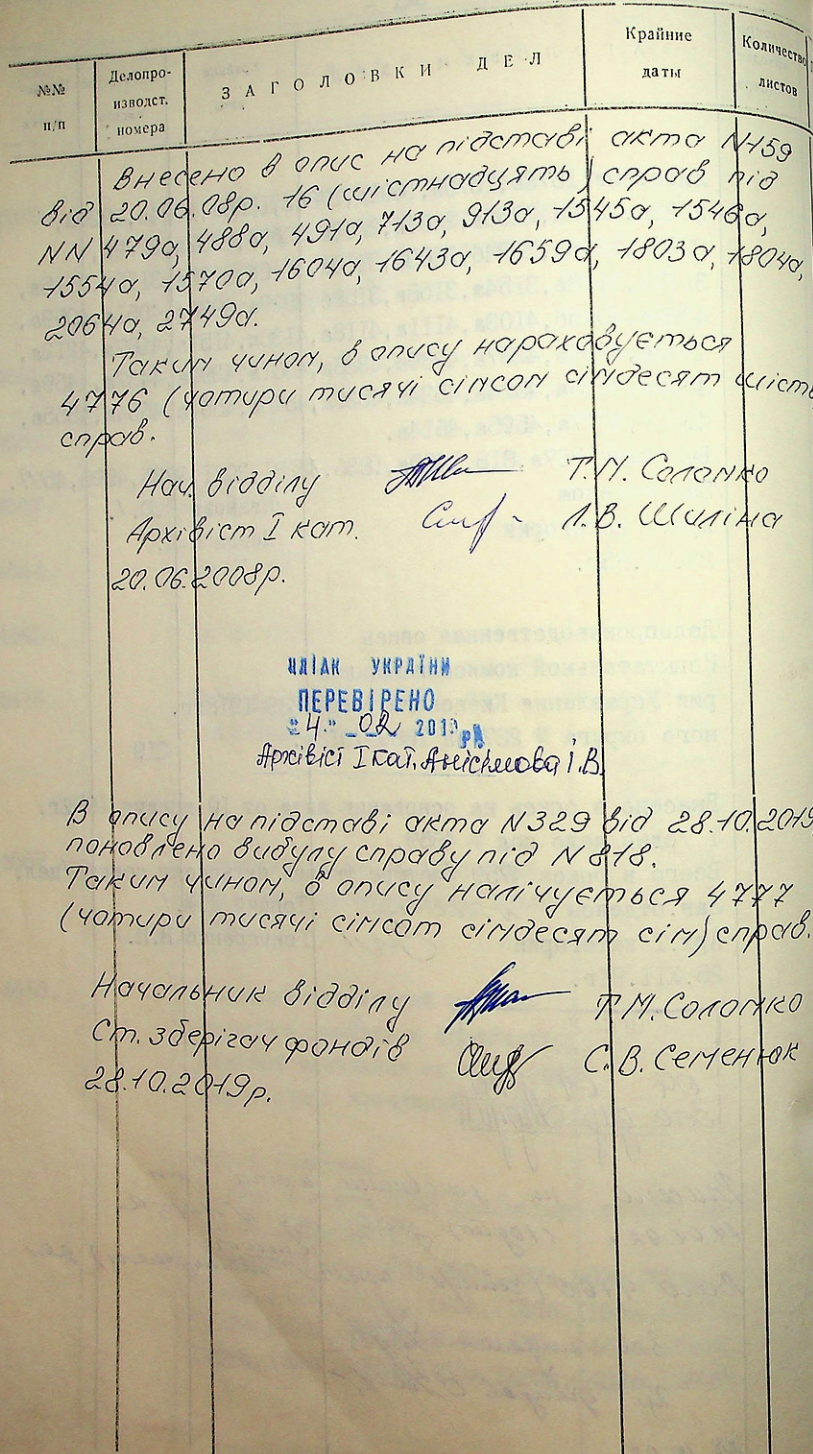 №№ п/п
Делопро-изводст. номера
ЗАГОЛОВКИ ДЕЛ
Крайние даты
Количество листов
Внесено в опис на підставі акта N159
від 20.06.08р. 16 (шістнадцять) справ під
NN 479а, 488а, 491а, 713а, 913а, 1545а, 1546а,
1554а, 1570а, 1604а, 1643а, 1659а, 1803а, 1804а,
2064а, 2749а.
Таким чином, в опису нараховується
4776 (чотири тисячі сімсот сімдесят шість
справ.
Нач. відділу Т.М. Соломко
Архівіст I кат. Л.В. Шиліна
20.06.2008р.
ЦДІАК УКРАЇНИ
ПЕРЕВІРЕНО
"4" 02 201 р.
Архівіст I кат. Анісімова І.В.
В опису на підставі акта N329 від 28.10.2019
поновлено вибулу справу під N 818.
Таким чином, в опису налічується 4777
(чотири тисячі сімсот сімдесят сім) справ.
Начальник відділу Т.М. Соломко
Ст. зберігач фондів С.В. Семенюк
28.10.2019р.